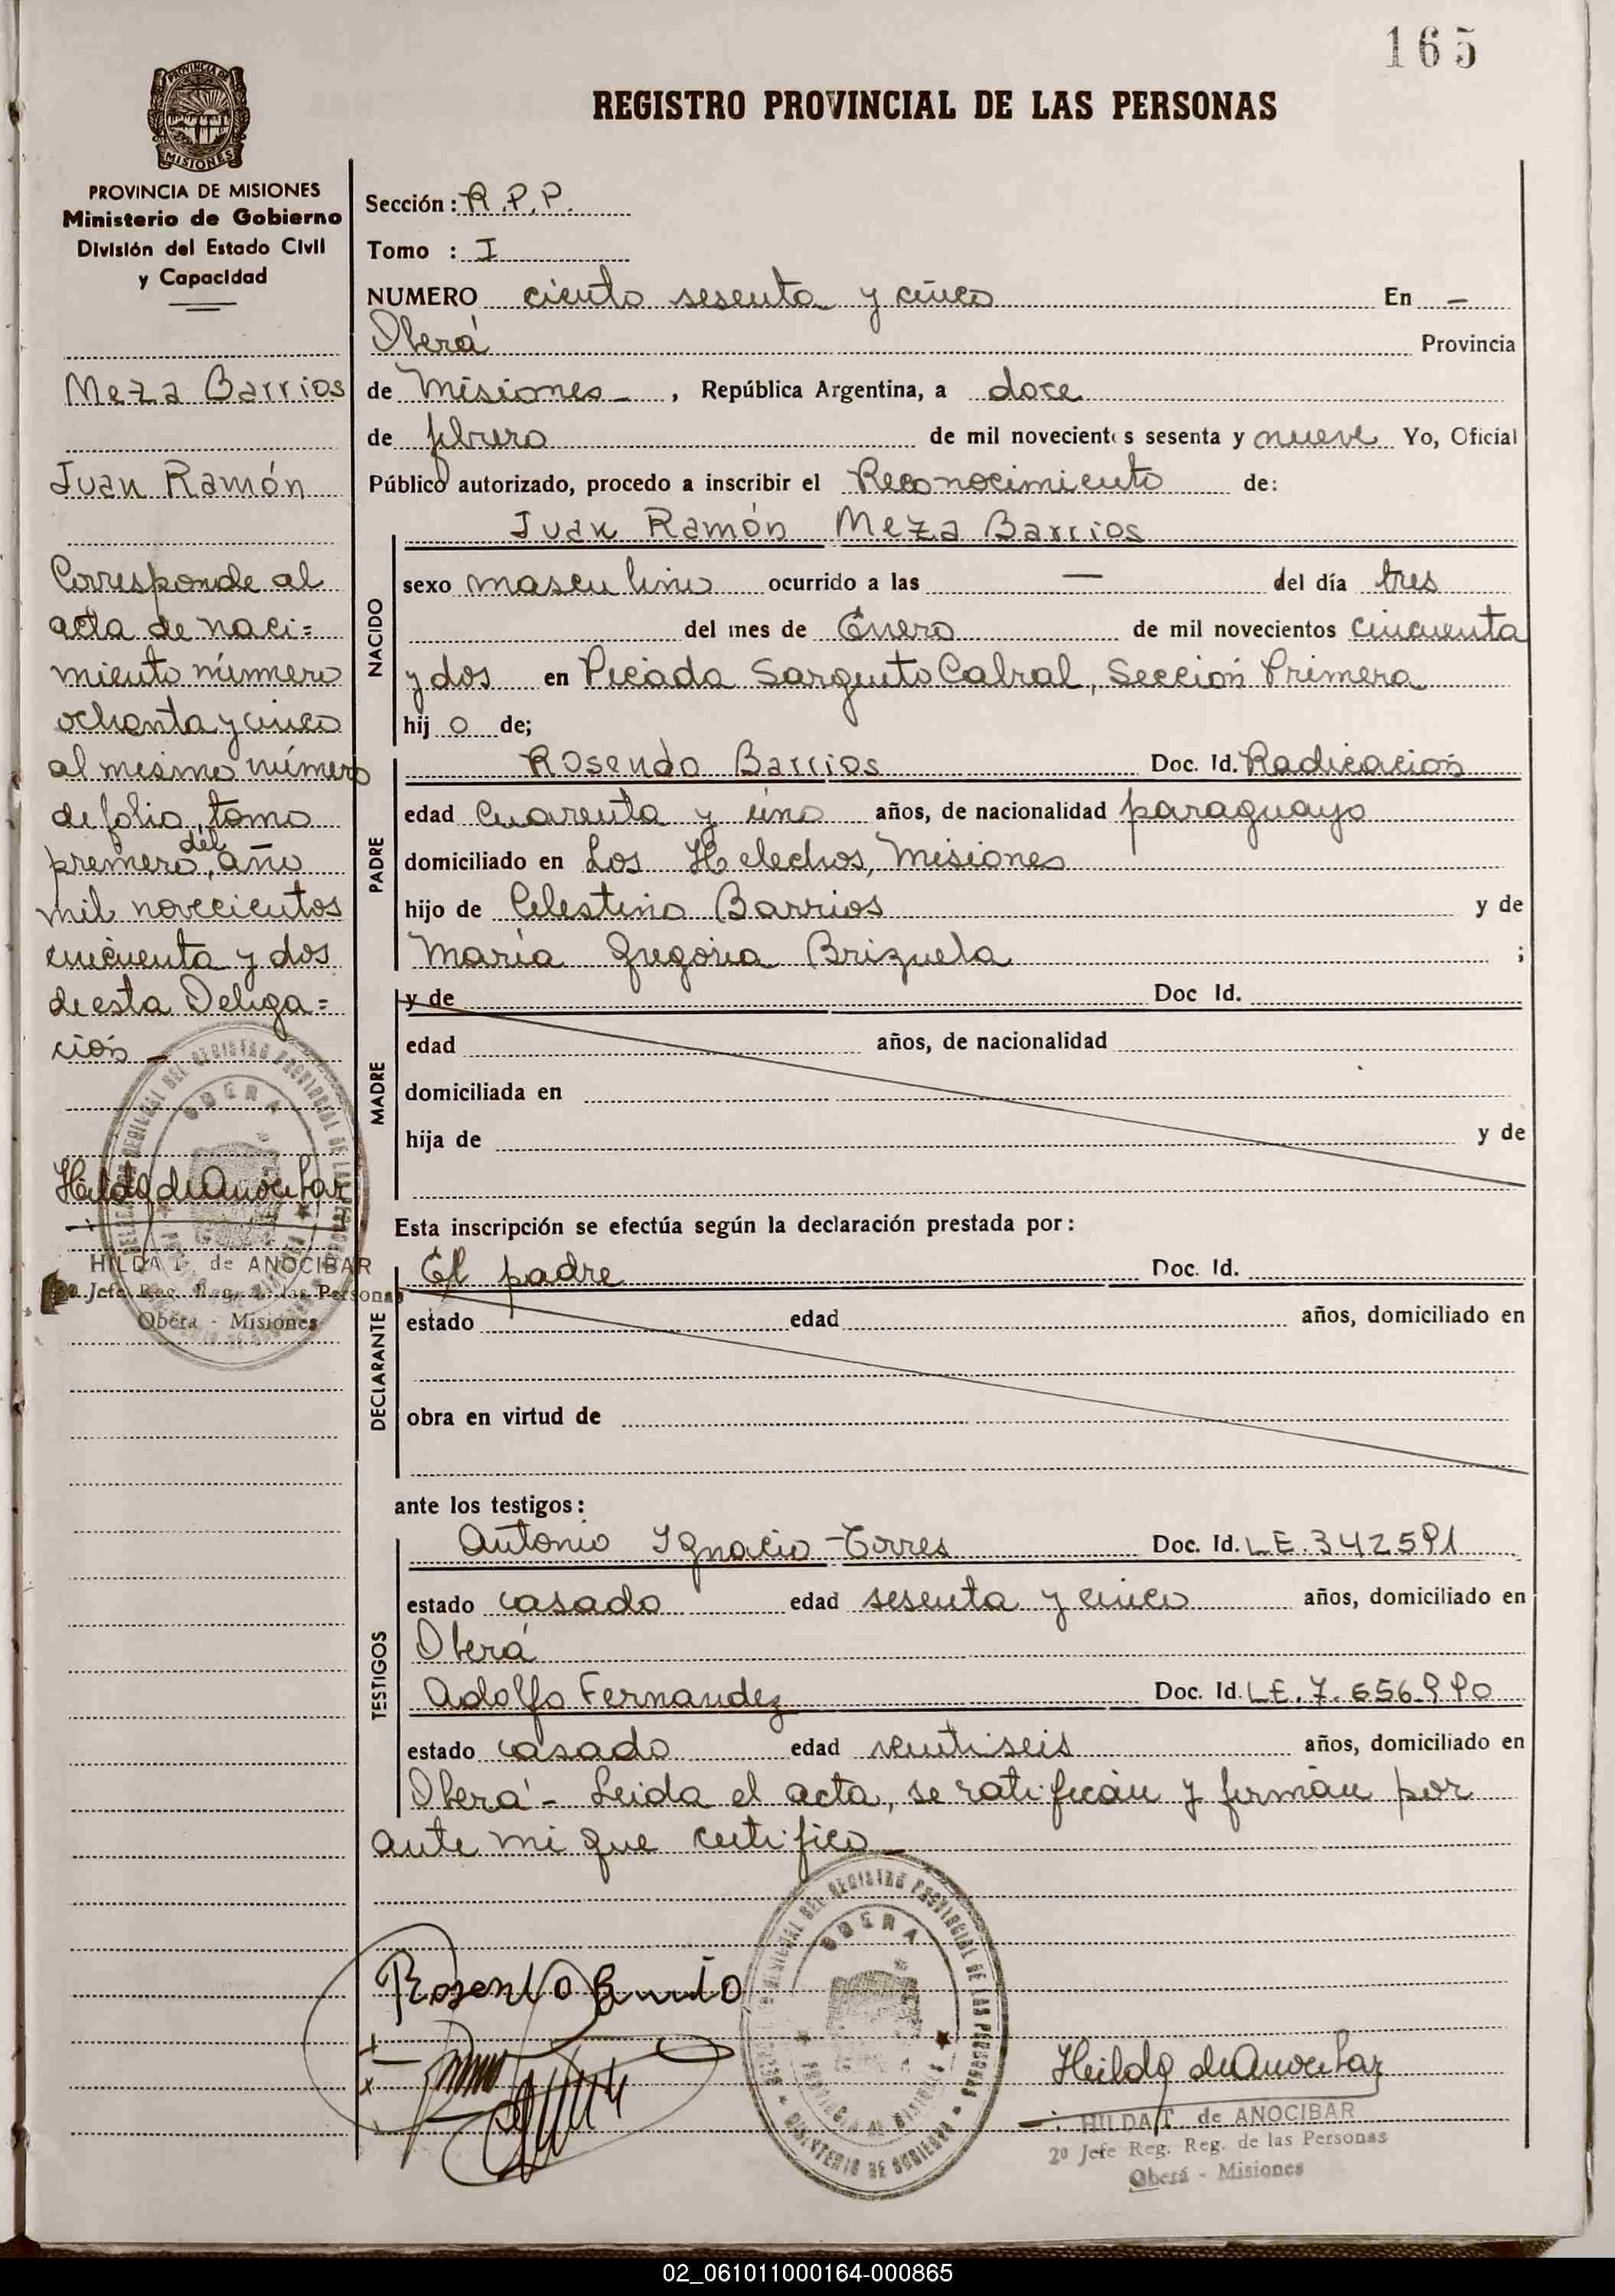 165
REGISTRO PROVINCIAL DE LAS PERSONAS
PROVINCIA DE MISIONES
Ministerio de Gobierno
División del Estado Civil
y Capacidad
Meza Barrios
Juan Ramón
Corresponde al
acta de naci=
miento número
ochenta y cinco
al mismo número
de folio, tomo
primero, del año
mil novecientos
cincuenta y dos
de esta Delega=
ción
HILDA T. de ANOCIBAR
2º Jefe Reg. Reg. de las Personas
Oberá - Misiones
Sección: R.P.P.
Tomo : I
NUMERO ciento sesenta y cinco En —
Oberá Provincia
de Misiones , República Argentina, a doce
de febrero de mil novecientos sesenta y nueve Yo, Oficial
Público autorizado, procedo a inscribir el Reconocimiento de:
Juan Ramón Meza Barrios
NACIDO
sexo masculino ocurrido a las — del día tres
del mes de Enero de mil novecientos cincuenta
y dos en Picada Sargento Cabral, Sección Primera
hij o de;
PADRE
Rosendo Barrios Doc. Id. Radicación
edad cuarenta y uno años, de nacionalidad paraguayo
domiciliado en Los Helechos, Misiones
hijo de Celestino Barrios y de
María Gregoria Brizuela ;
MADRE
y de Doc Id.
edad años, de nacionalidad
domiciliada en
hija de y de
Esta inscripción se efectúa según la declaración prestada por:
DECLARANTE
El padre Doc. Id.
estado edad años, domiciliado en
obra en virtud de
ante los testigos:
TESTIGOS
Antonio Ignacio Torres Doc. Id. LE. 342591
estado casado edad sesenta y cinco años, domiciliado en
Oberá
Adolfo Fernandez Doc. Id. LE. 7.656.990
estado casado edad veintiseis años, domiciliado en
Oberá - Leida el acta, se ratifican y firman por
ante mi que certifico
Rosendo Barrio
OBERA
Hilda de Anocibar
HILDA T. de ANOCIBAR
2º Jefe Reg. Reg. de las Personas
Oberá - Misiones
02_061011000164-000865